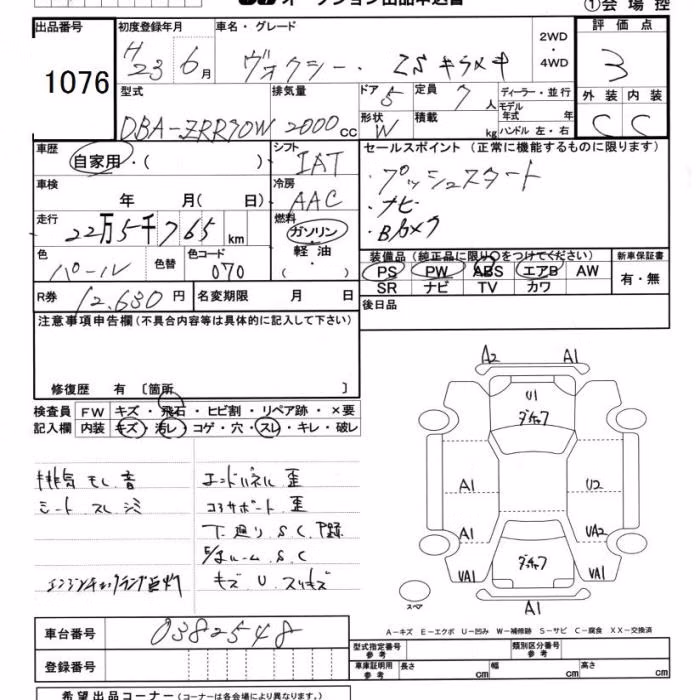 オークション出品申込書
①会場控
出品番号 1076
初度登録年月 H23 6月
車名・グレード ヴォクシー・ZSキラメキ
2WD・4WD
評価点 3
型式 DBA-ZRR70W
排気量 2000cc
ドア 5
定員 7人
形状 W
積載 kg
ディーラー・並行
モデル年式 年
ハンドル 左・右
外装 内装
C C
車歴 自家用・( )
シフト IAT
車検 年 月( 日)
冷房 AAC
走行 22万5千765km
燃料 ガソリン・軽油・( )
色 パール 色替
色コード 070
R券 12,630円
名変期限 月 日
セールスポイント (正常に機能するものに限ります)
・プッシュスタート
・ナビ
・Bカメラ
装備品 (純正品に限り○をつけてください)
新車保証書
PS PW ABS エアB AW
SR ナビ TV カワ
有・無
後日品
注意事項申告欄(不具合内容等は具体的に記入して下さい)
修復歴 有 〔箇所 〕
検査員記入欄
FW キズ・飛石・ヒビ割・リペア跡・×要
内装 キズ・汚レ・コゲ・穴・スレ・キレ・破レ
排気モレ音
シート スレ シミ
エンドパネル 歪
コアサポート 歪
下廻り S.C.
S.C
キズ U スリキズ
A2 A1
U1
ダッチャク
A1 U2
A1 UA2
VA1 VA1
ダッチャク
A1
スペア
A-キズ E-エクボ U-凹み W-補修跡 S-サビ C-腐食 XX-交換済
車台番号 0382548
登録番号
型式指定番号 参考
類別区分番号 参考
車庫証明用 参考
長さ cm 幅 cm 高さ cm
希望出品コーナー (コーナーは各会場により異なります。)